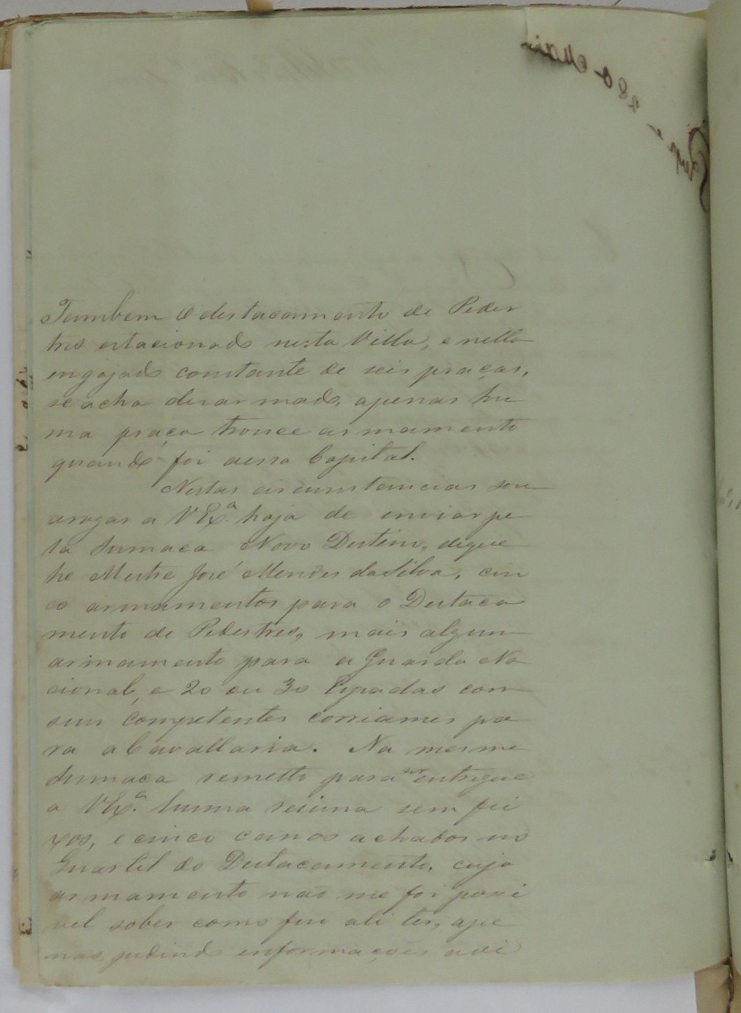 Tambem o destacamento de Pedes
tres estacionado nesta Villa, e nella
engajado constante de seis praças,
se acha desarmado, apenas hu
ma praça trouce armamento
quando foi dessa Capital.
Nestas circunstancias sou
a rogar a VExª. haja de enviar pe
la Sumaca Novo Destino, de que
he Mestre José Mendes da Silva, cin
co armamentos para o Destaca
mento de Pedestres, mais algum
armamento para a Guarda Na
cional, e 20 ou 30 Espadas com
seus competentes correames pa
ra a Cavallaria. Na mesma
Sumaca remetto para ser entregue
a VExª. huma sem fei
xos, e cinco canos achados no
Quartel do Destacamento, cujo
armamento não me foi possi
vel saber como foi ali ter, ape
nas, pedindo informações a